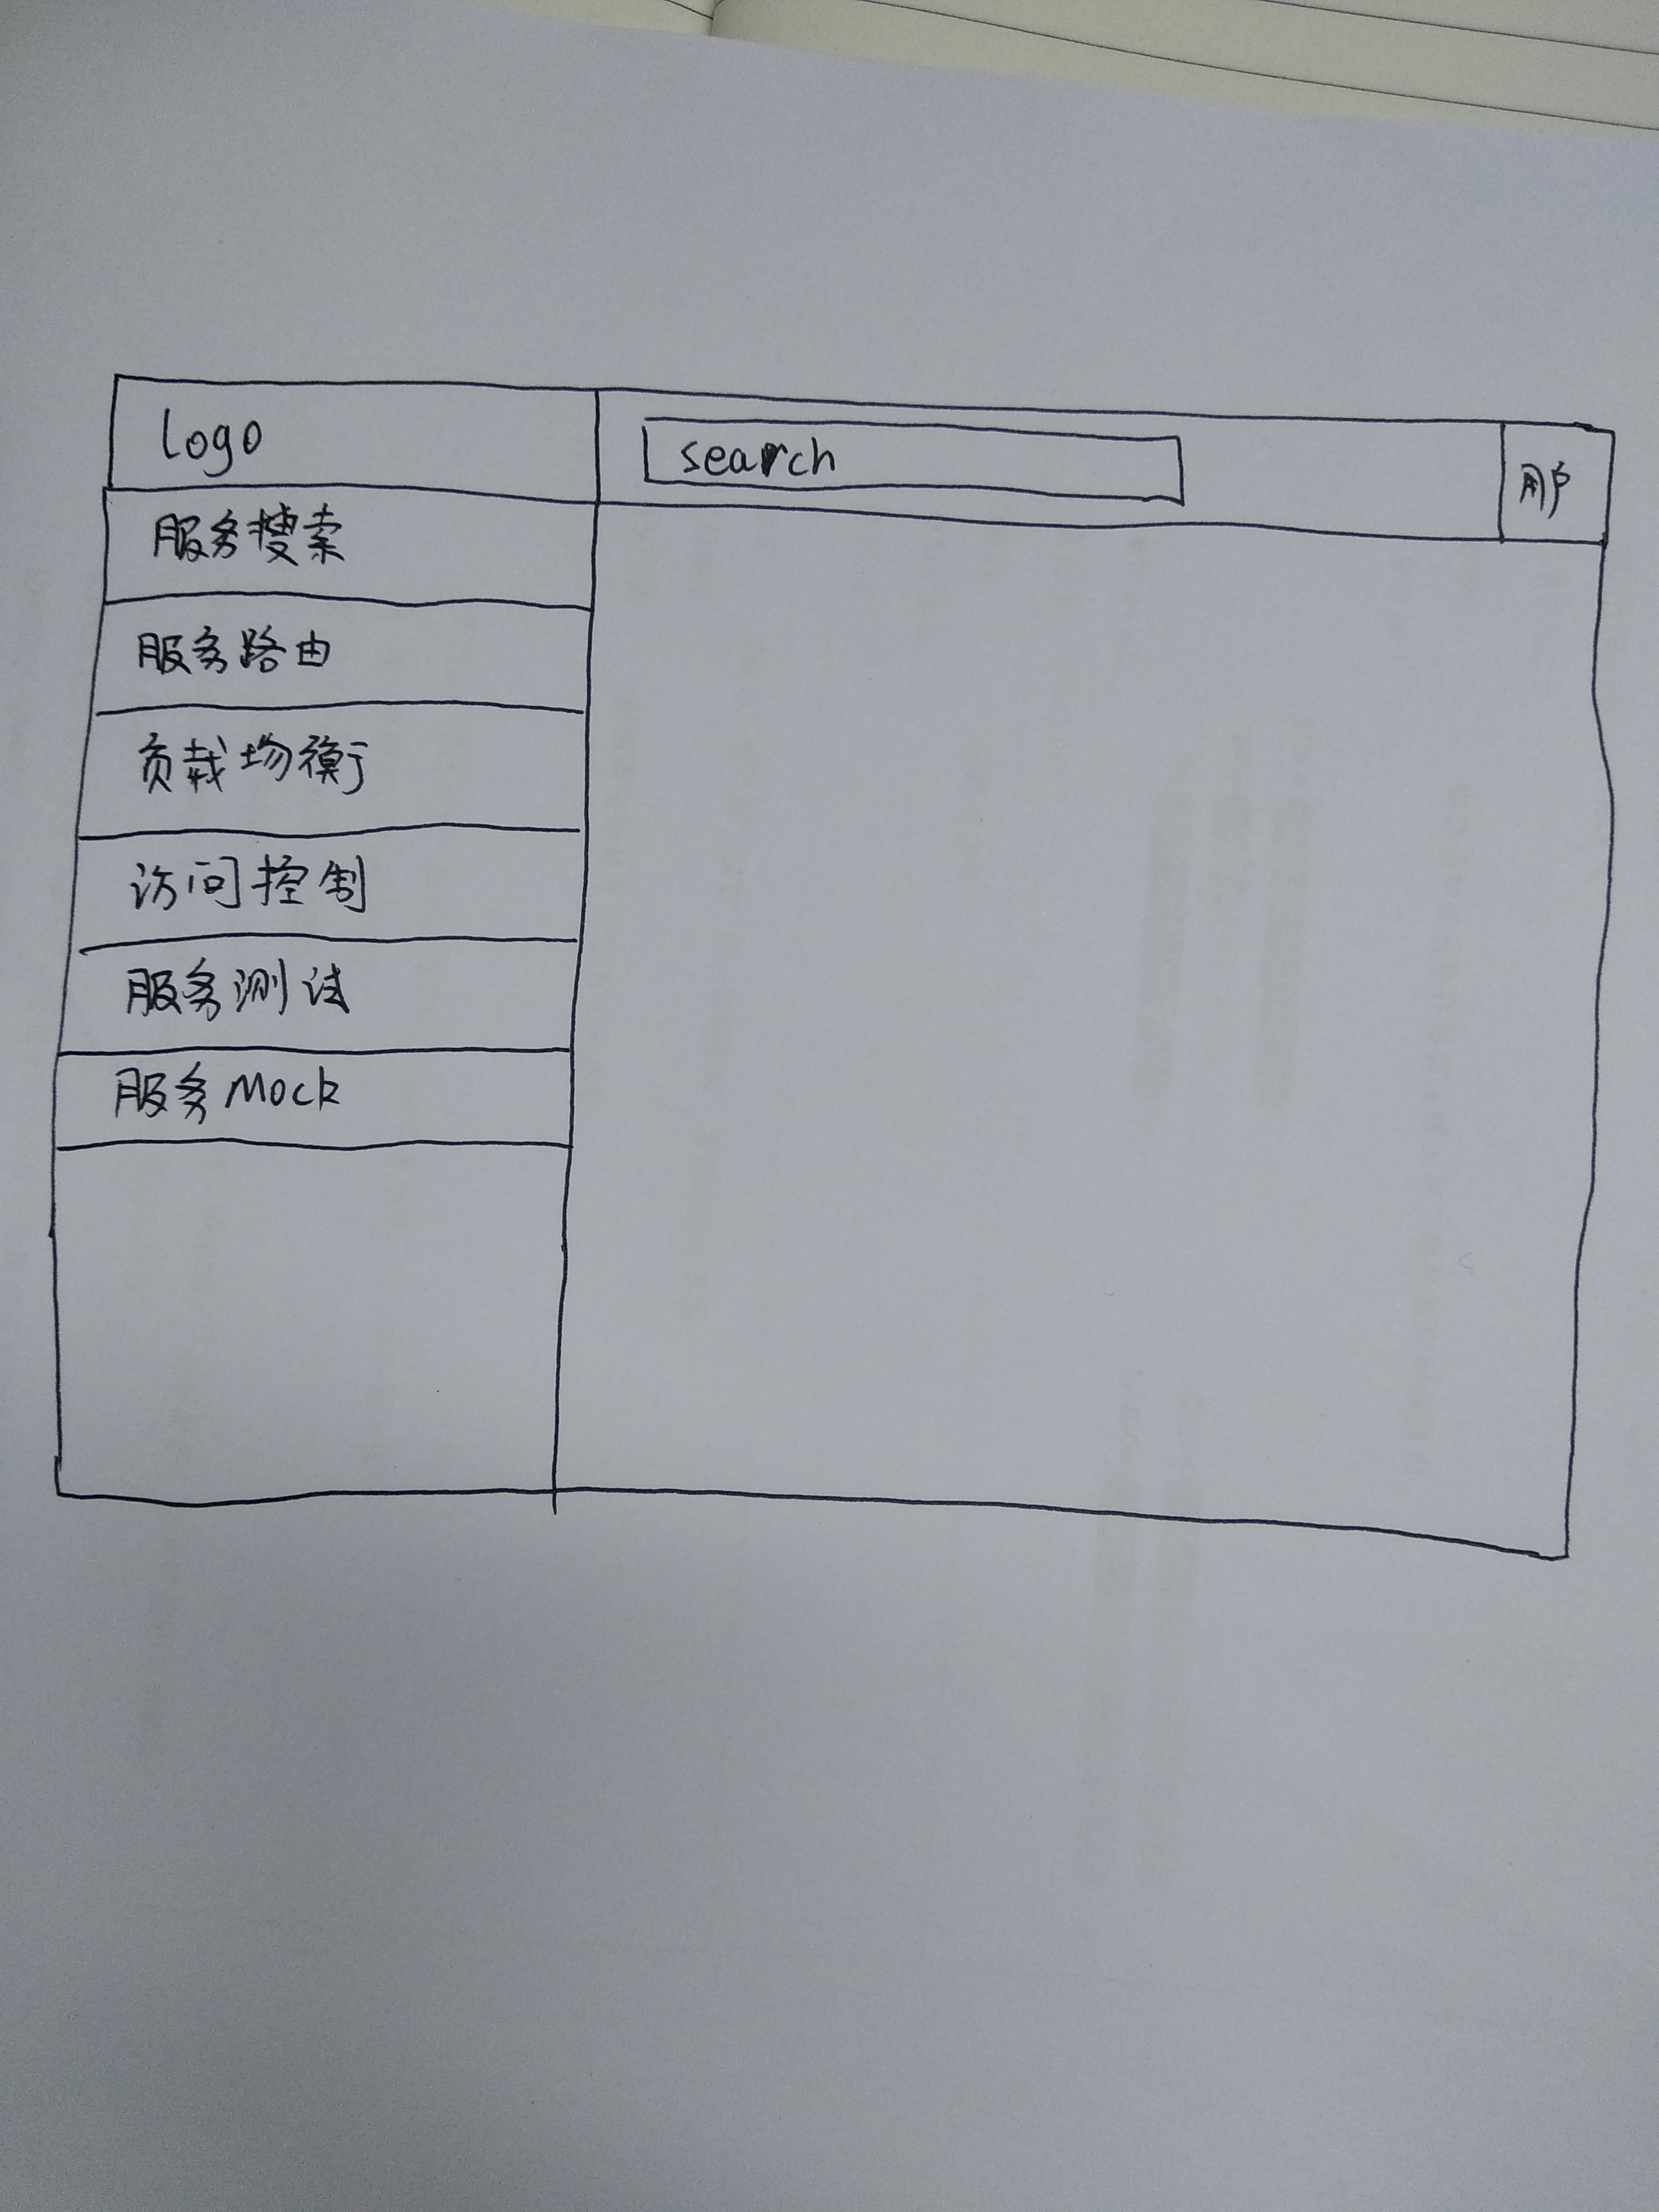 logo
search
用户
服务搜索
服务路由
负载均衡
访问控制
服务测试
服务Mock